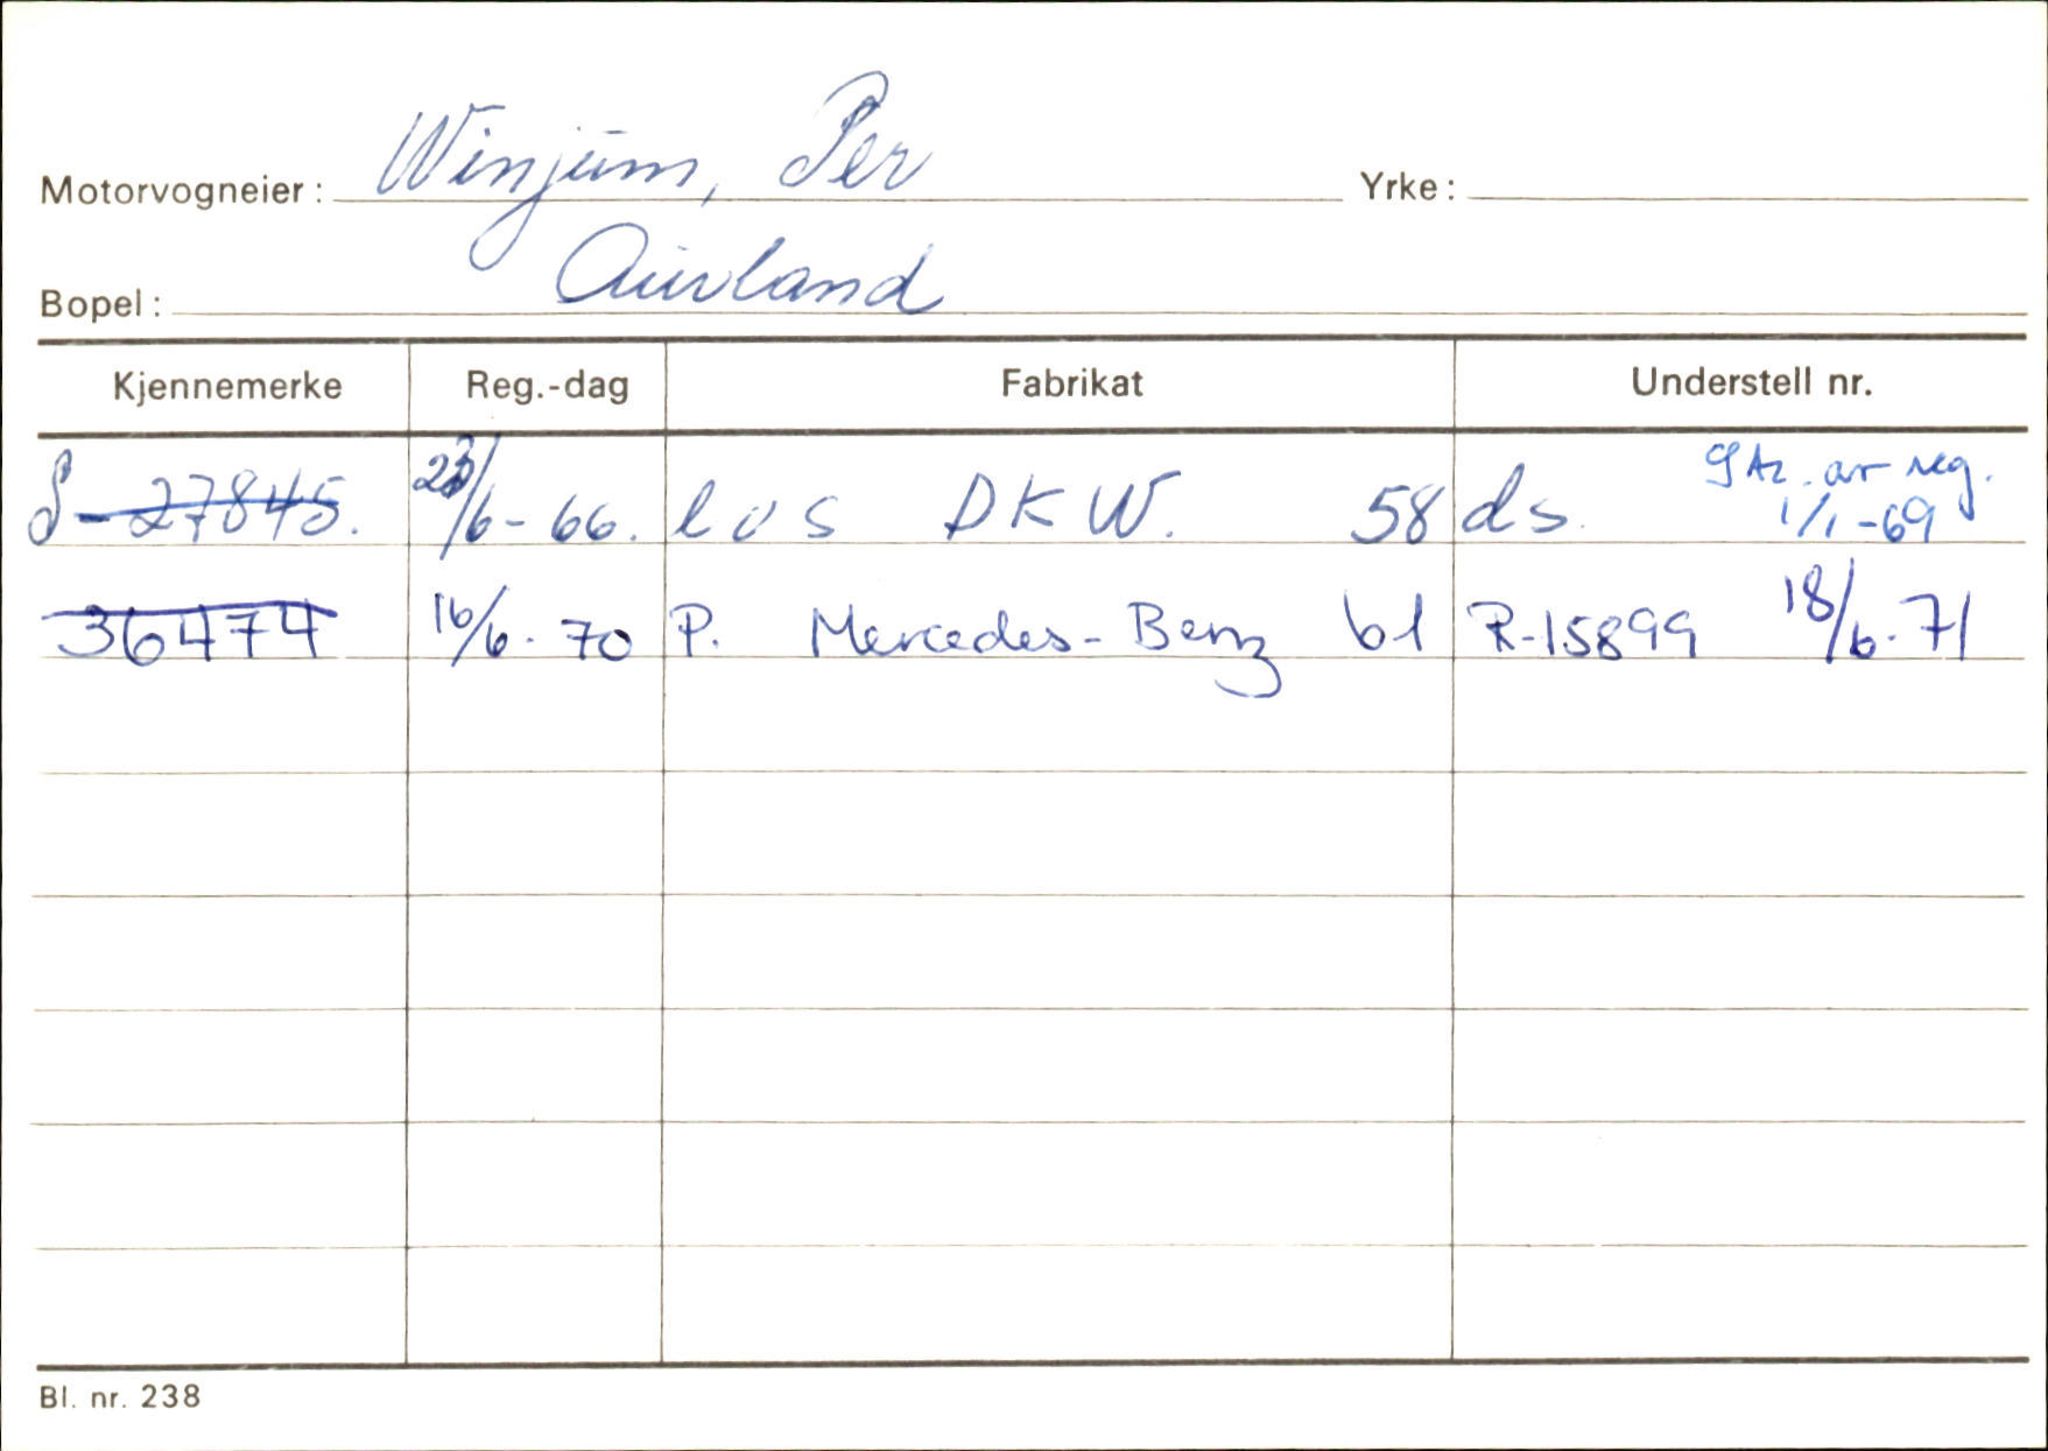 Motorvogneier: Winjum, Per Yrke:
Bopel: Aurland
Kjennemerke Reg.-dag Fabrikat Understell nr.
S-27845. 23/6-66. las DKW. 58 ds. av reg. 1/1-69
36474 16/6-70 P. Mercedes-Benz 61 R-15899 18/6-71
Bl. nr. 238